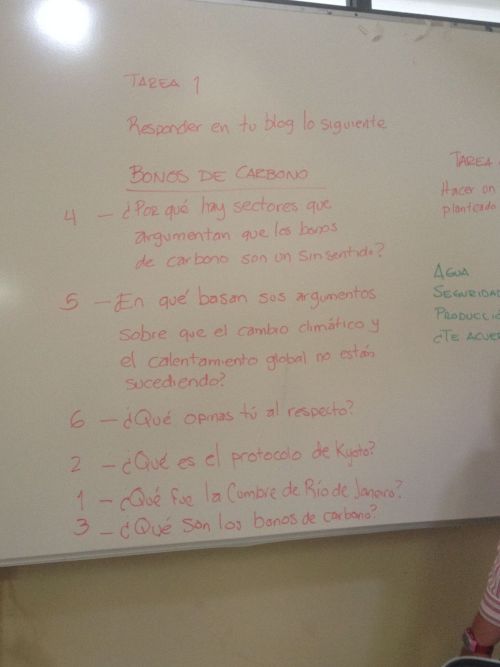 TAREA 1
Responder en tu blog lo siguiente
BONOS DE CARBONO
4 - ¿Por qué hay sectores que
argumentan que los bonos
de carbono son un sinsentido?
5 - ¿En qué basan sus argumentos
sobre que el cambio climático y
el calentamiento global no están
sucediendo?
6 - ¿Qué opinas tú al respecto?
2 - ¿Qué es el protocolo de Kyoto?
1 - ¿Qué fue la Cumbre de Río de Janero?
3 - ¿Qué son los bonos de carbono?
TAREA
Hacer un
planteado
AGUA
SEGURIDAD
PRODUCCIÓ
¿TE ACUER